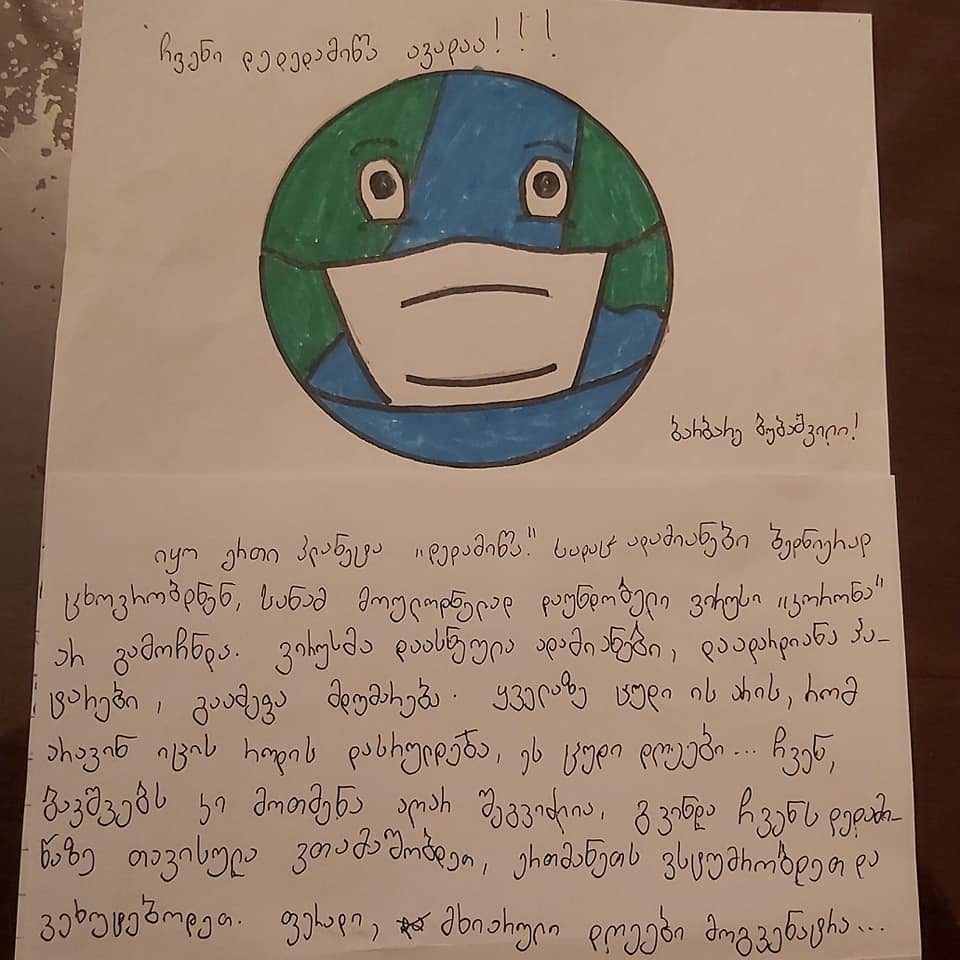 ჩვენი დედედამიწა ავადაა!!!
ბარბარე ბუბაშვილი!
იყო ერთი პლანეტა "დედამიწა." სადაც ადამიანები ბედნიერად
ცხოვრობდნენ, სანამ მოულოდნელად დაუნდობელი ვირუსი "კორონა"
არ გამოჩნდა. ვირუსმა დაასნეულა ადამიანები, დაადარდიანა პა-
ტარები, გაამეფა მდუმარება. ყველაზე ცუდი ის არის, რომ
არავინ იცის როდის დასრულდება, ეს ცუდი დღეები... ჩვენ,
ბავშვებს კი მოთმენა აღარ შეგვიძლია, გვინდა ჩვენს დედამი-
წაზე თავისუფლა ვთამაშობდეთ, ერთმანეთს ვსტუმრობდეთ და
ვეხუტებოდეთ. ფერადი, მხიარული დღეები მოგვენატრა...